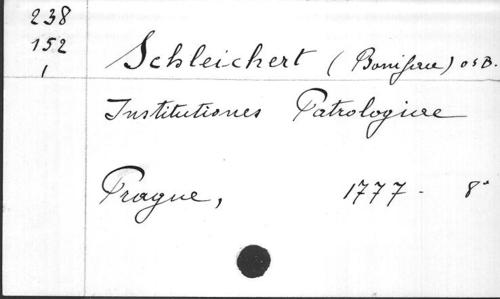 238
152
1
Schleichert (Boniface) OSB.
Institutiones Patrologicae
Prague, 1777 - 8°